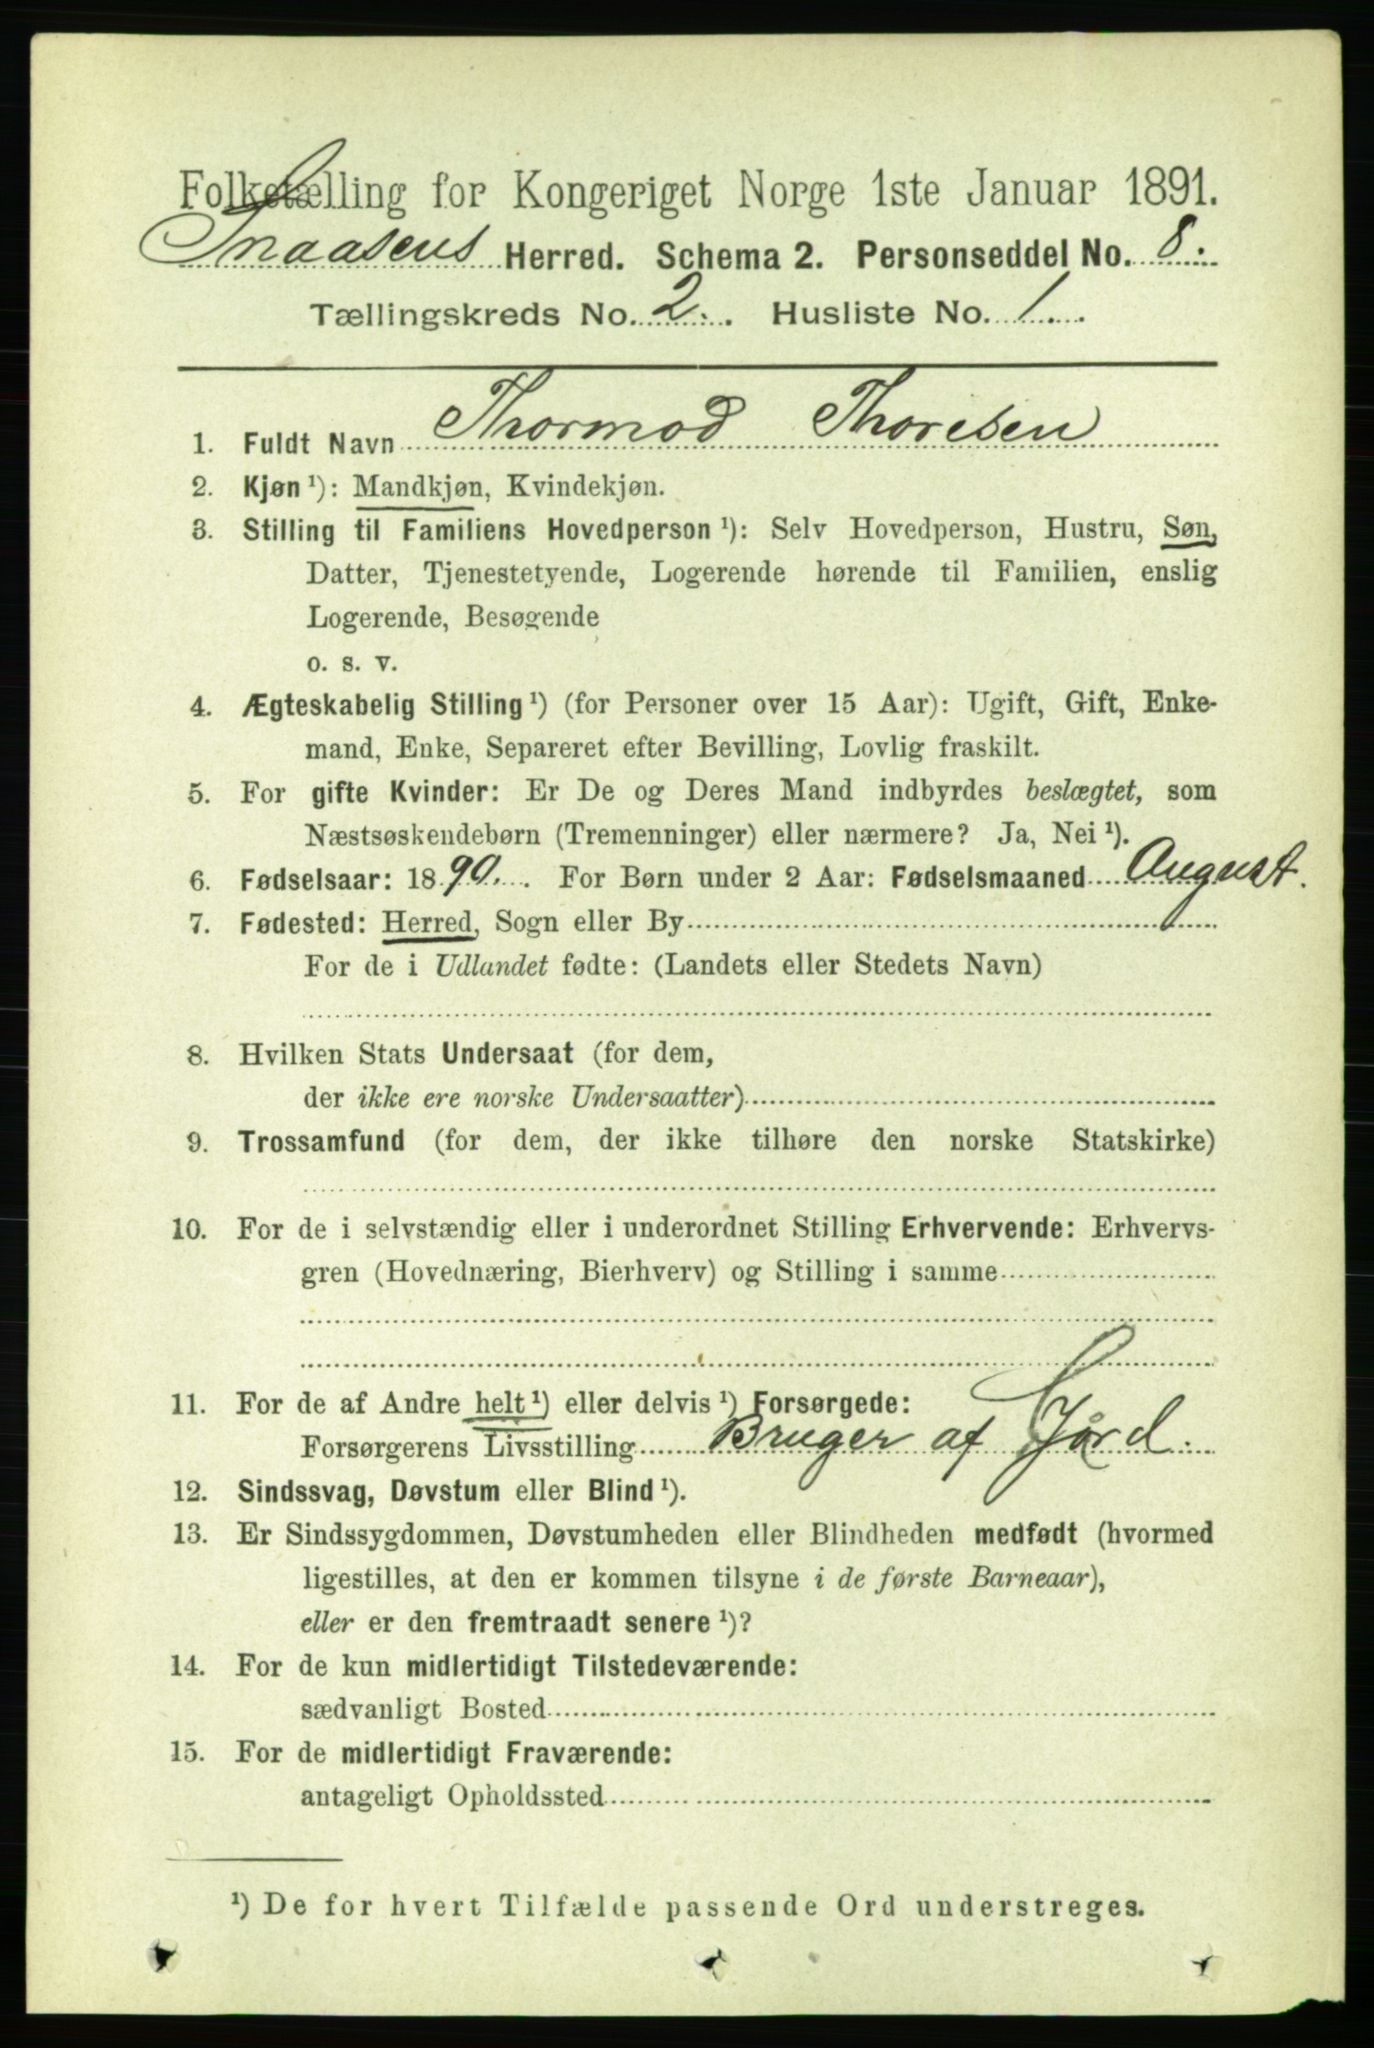 Folketælling for Kongeriget Norge 1ste Januar 1891.
Snaasens Herred. Schema 2. Personseddel No. 8.
Tællingskreds No. 2. Husliste No. 1.
1. Fuldt Navn Thormod Thoresen
2. Kjøn ¹): Mandkjøn, Kvindekjøn.
3. Stilling til Familiens Hovedperson ¹): Selv Hovedperson, Hustru, Søn,
Datter, Tjenestetyende, Logerende hørende til Familien, enslig
Logerende, Besøgende
o. s. v.
4. Ægteskabelig Stilling ¹) (for Personer over 15 Aar): Ugift, Gift, Enke-
mand, Enke, Separeret efter Bevilling, Lovlig fraskilt.
5. For gifte Kvinder: Er De og Deres Mand indbyrdes beslægtet, som
Næstsøskendebørn (Tremenninger) eller nærmere? Ja, Nei ¹).
6. Fødselsaar: 1890. For Børn under 2 Aar: Fødselsmaaned August.
7. Fødested: Herred, Sogn eller By
For de i Udlandet fødte: (Landets eller Stedets Navn)
8. Hvilken Stats Undersaat (for dem,
der ikke ere norske Undersaatter)
9. Trossamfund (for dem, der ikke tilhøre den norske Statskirke)
10. For de i selvstændig eller i underordnet Stilling Erhvervende: Erhvervs-
gren (Hovednæring, Bierhverv) og Stilling i samme
11. For de af Andre helt ¹) eller delvis ¹) Forsørgede:
Forsørgerens Livsstilling Bruger af Jård.
12. Sindssvag, Døvstum eller Blind ¹).
13. Er Sindssygdommen, Døvstumheden eller Blindheden medfødt (hvormed
ligestilles, at den er kommen tilsyne i de første Barneaar),
eller er den fremtraadt senere ¹)?
14. For de kun midlertidigt Tilstedeværende:
sædvanligt Bosted
15. For de midlertidigt Fraværende:
antageligt Opholdssted
¹) De for hvert Tilfælde passende Ord understreges.